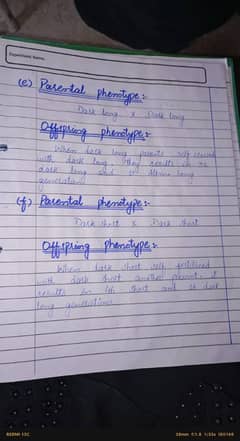 Experiment Name:
(e) Parental phenotype:-
Dark long x Dark long
Offspring phenotype:-
When dark long parents self crossed
with dark long They results in
dark long and
generation
(f) Parental phenotype:-
Dark short x Dark short
Offspring phenotype:-
When dark short self fertilized
with dark short another parent it
results in short and dark
long generation
REDMI 13C